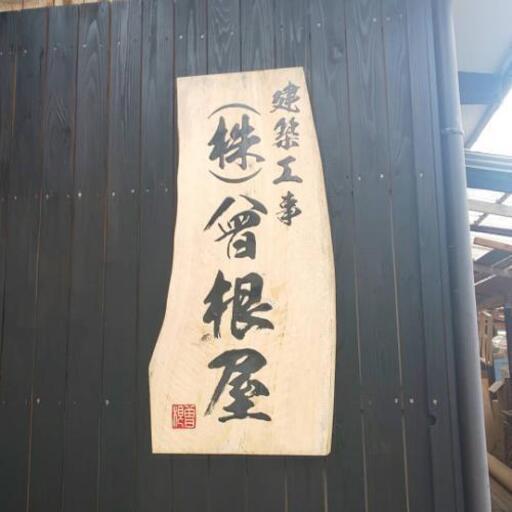 建築工事
(株)曾根屋
曽根